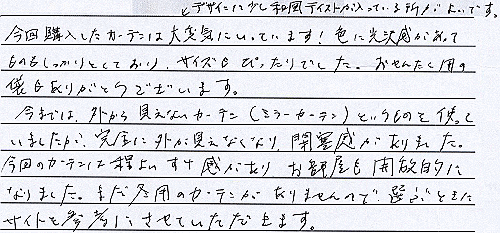 デザインに少し和風テイストが入っている所がよいです。
今回購入したカーテンは大変気にいっています!色に光沢感があって
ものもしっかりとしており、サイズもぴったりでした。おせんたく用の
袋もありがとうございます。
今までは、外から見えないカーテン(ミラーカーテン)というものを使って
いましたが、完全に外が見えなくなり、閉塞感がありました。
今回のカーテンは程よいすけ感があり お部屋も開放的に
なりました。まだ冬用のカーテンがありませんので、選ぶときに
サイトを参考にさせていただきます。